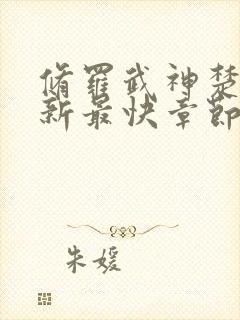 脩羅武神楚
新最快章節
朱媛